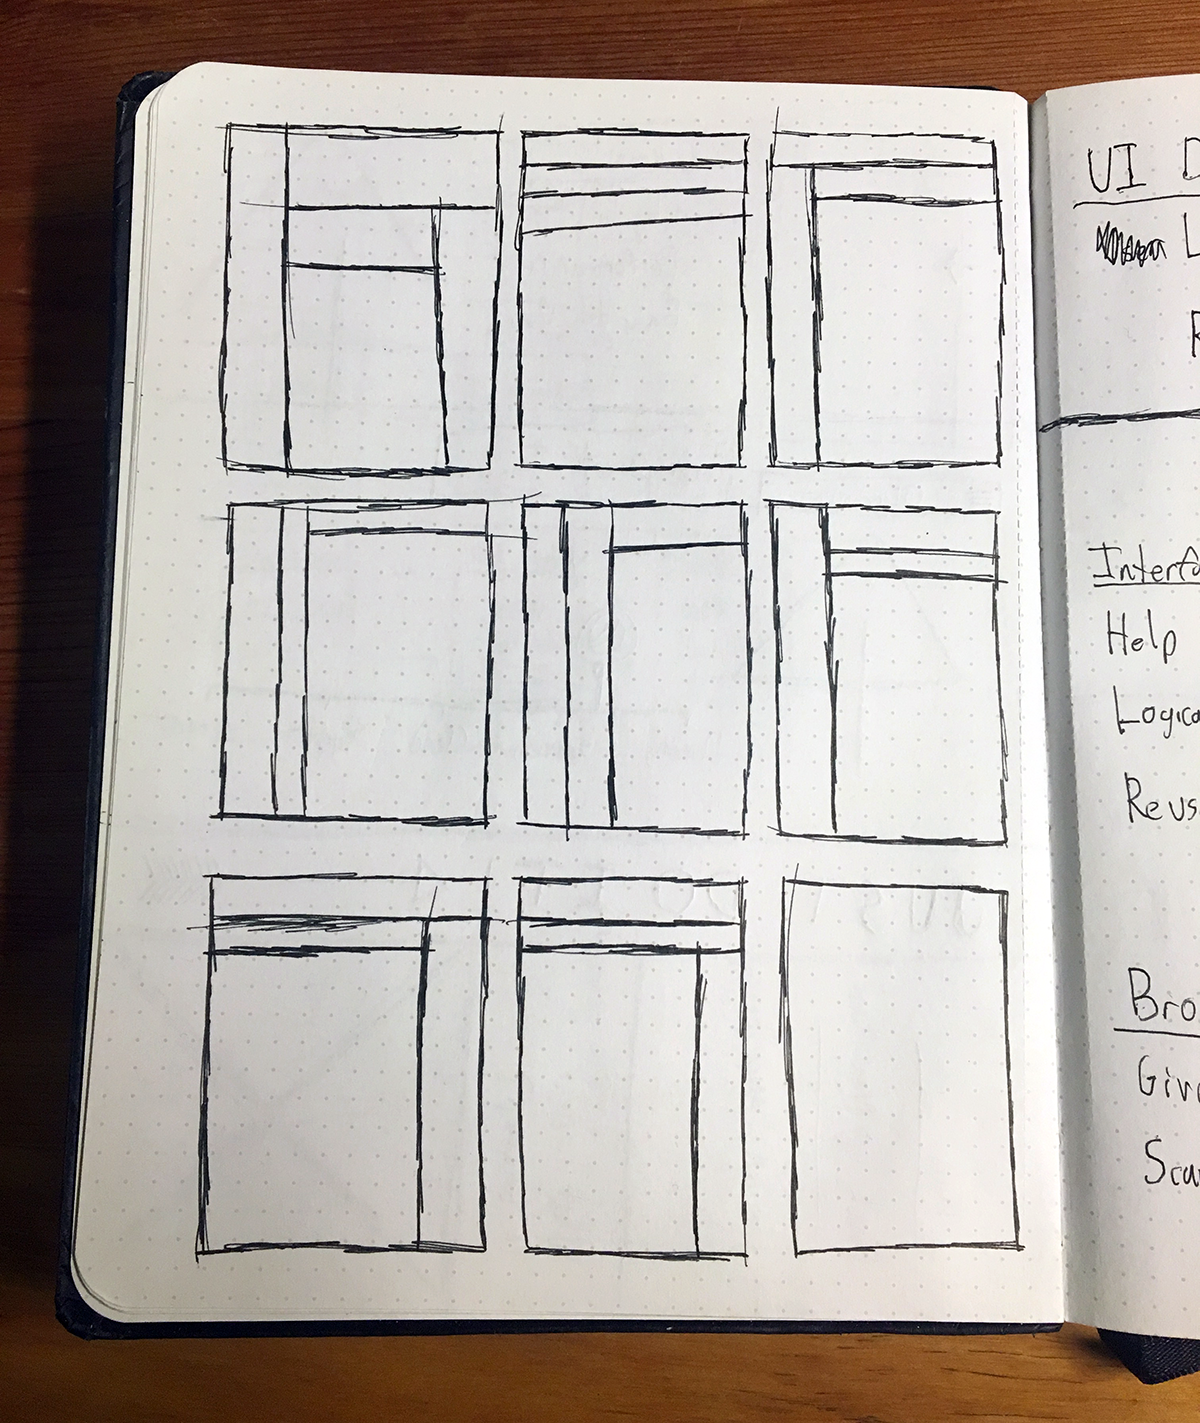 UI D
L
R
Interfa
Help
Logica
Reus
Bro
Give
Scan